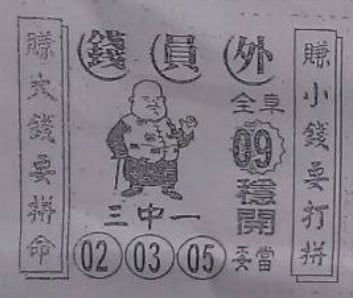 錢員外
賺大錢要拼命
全車
09
穩開
妥當
三中一
02 03 05
賺小錢要打拼